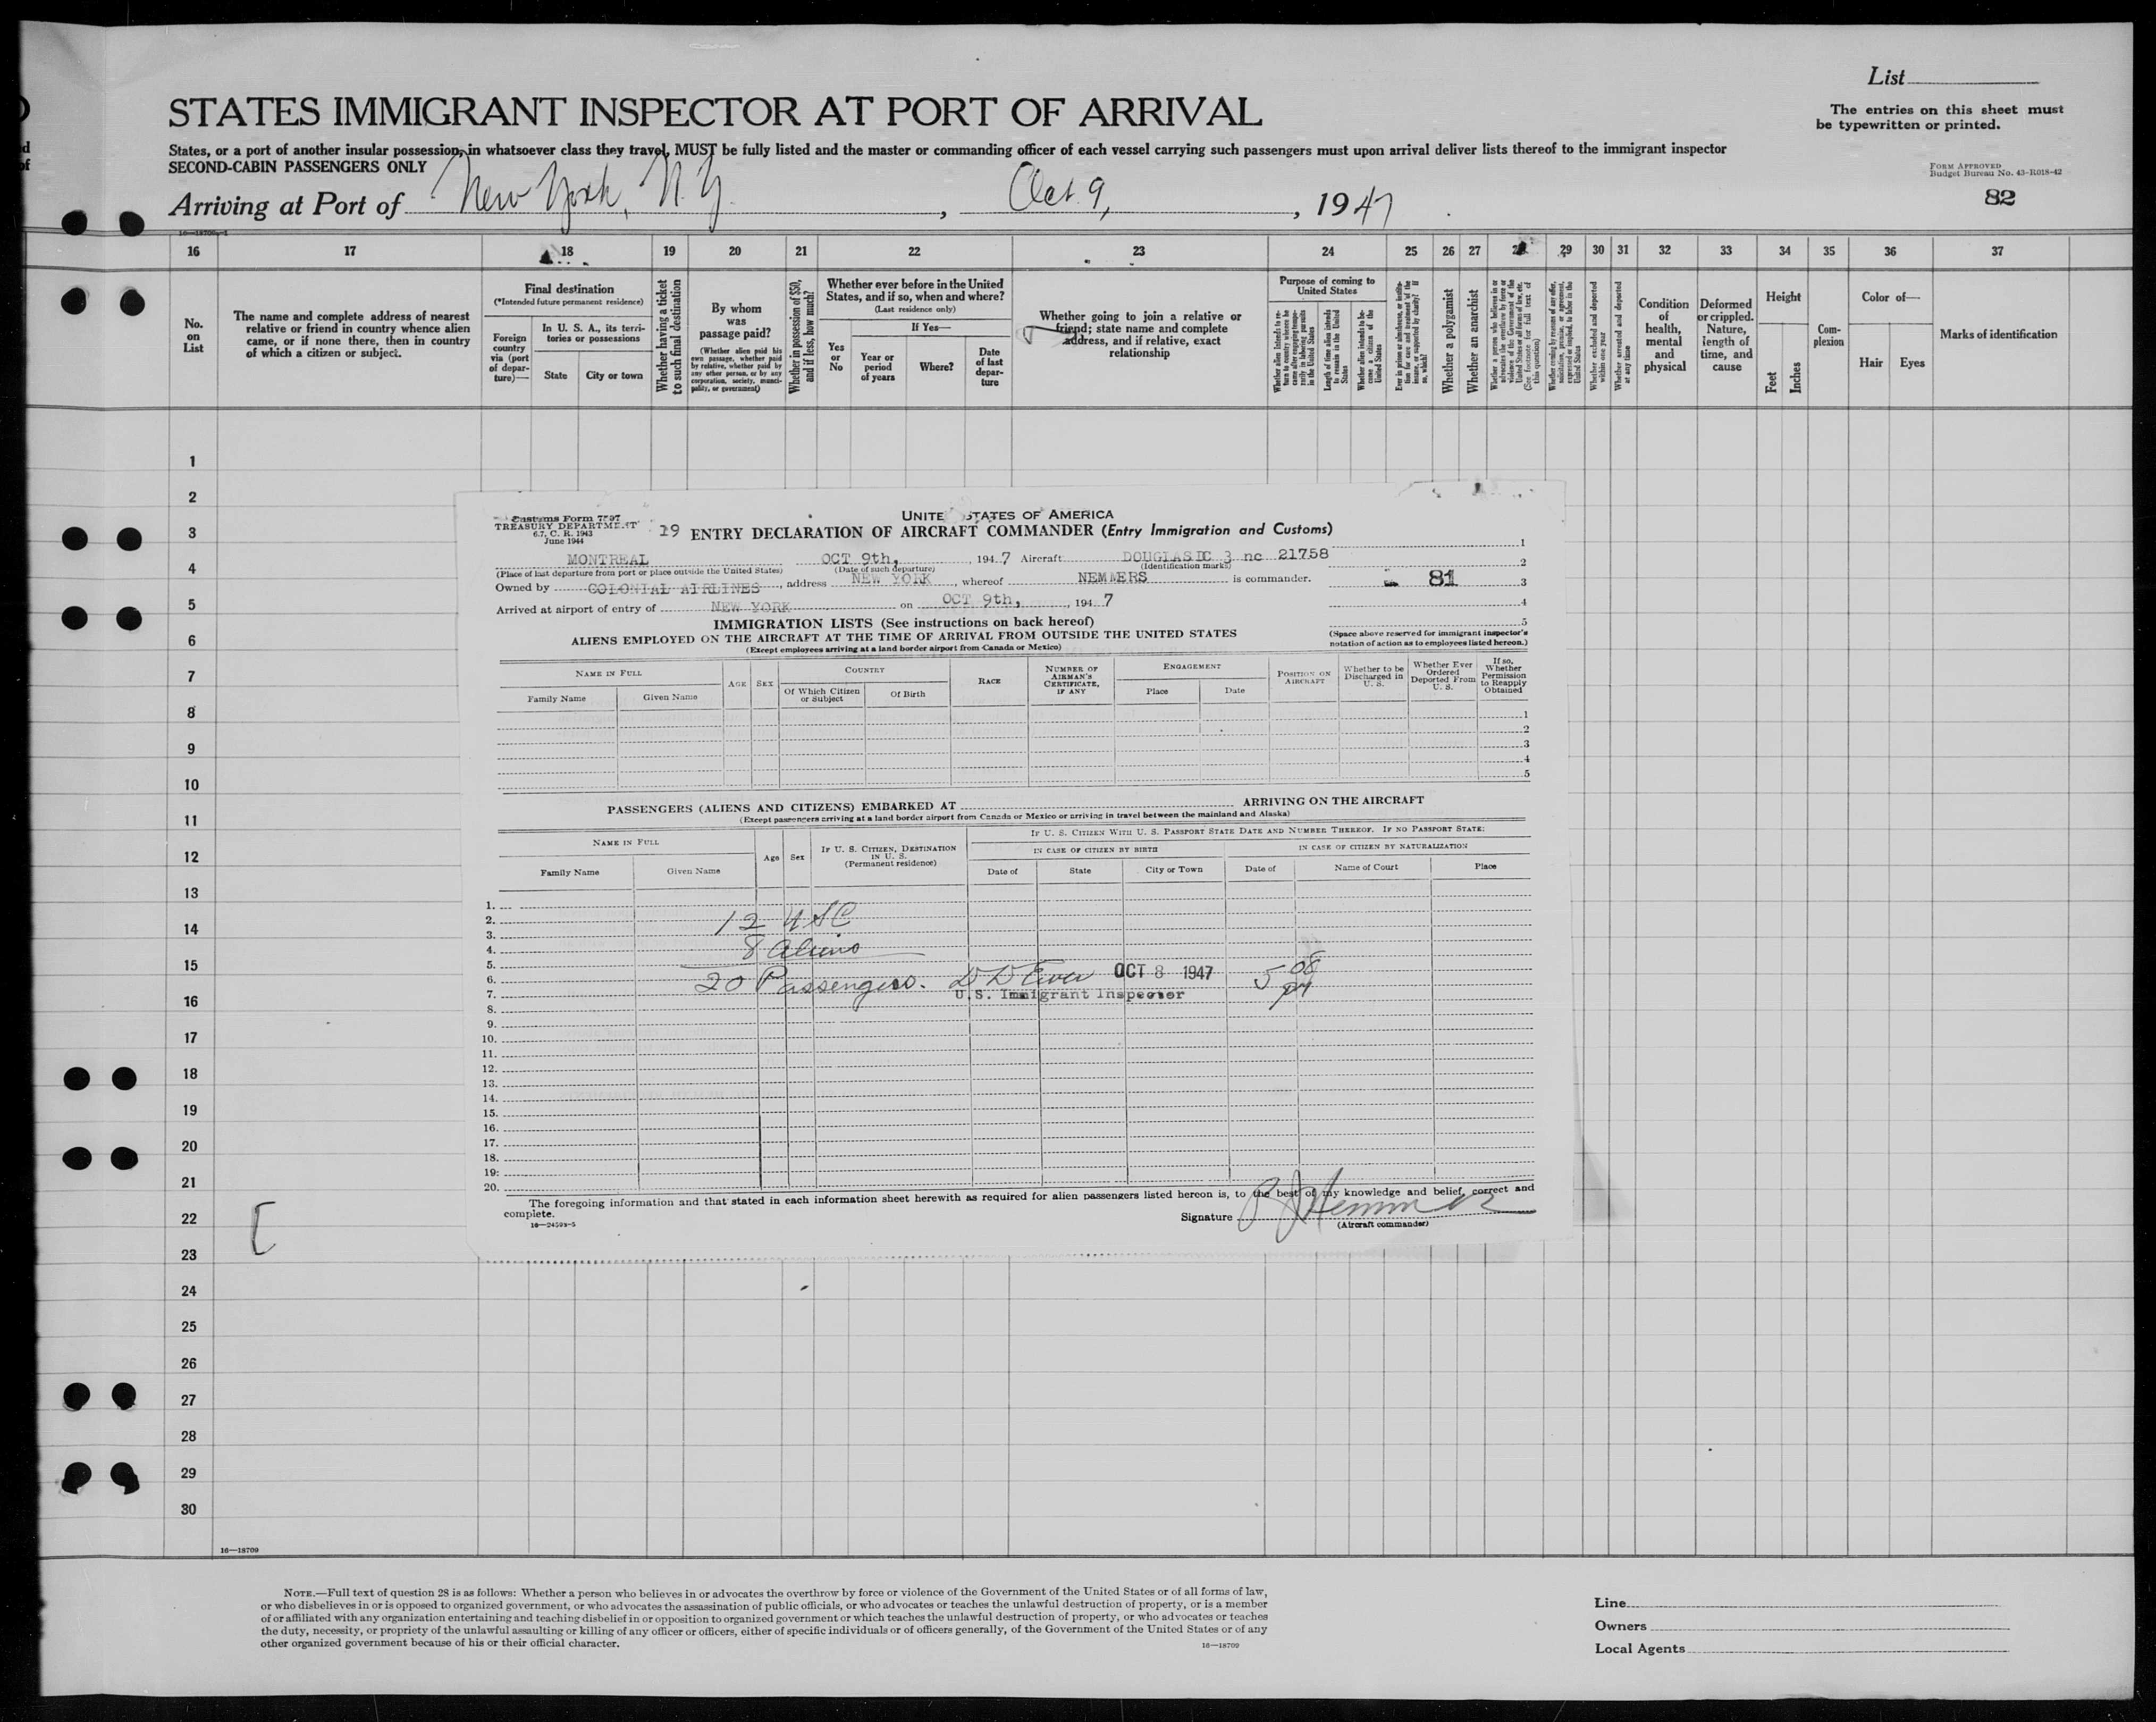 List
STATES IMMIGRANT INSPECTOR AT PORT OF ARRIVAL
The entries on this sheet must
be typewritten or printed.
States, or a port of another insular possession, in whatsoever class they travel, MUST be fully listed and the master or commanding officer of each vessel carrying such passengers must upon arrival deliver lists thereof to the immigrant inspector
SECOND-CABIN PASSENGERS ONLY
FORM APPROVED
Budget Bureau No. 43-R018-42
82
Arriving at Port of New York, N.Y. , Oct. 9, , 1947
16 17 18 19 20 21 22 23 24 25 26 27 29 30 31 32 33 34 35 36 37
No.
on
List
The name and complete address of nearest
relative or friend in country whence alien
came, or if none there, then in country
of which a citizen or subject.
Final destination
(*Intended future permanent residence)
Foreign
country
via (port
of depar-
ture)—
In U. S. A., its terri-
tories or possessions
State City or town
Whether having a ticket
to such final destination
By whom
was
passage paid?
(Whether alien paid his
own passage, whether paid
by relative, whether paid by
any other person, or by any
corporation, society, munici-
pality, or government)
Whether in possession of $50,
and if less, how much?
Whether ever before in the United
States, and if so, when and where?
(Last residence only)
Yes
or
No
If Yes—
Year or
period
of years
Where?
Date
of last
depar-
ture
Whether going to join a relative or
friend; state name and complete
address, and if relative, exact
relationship
Purpose of coming to
United States
Length of time alien intends
to remain in the United
States
Whether alien intends to be-
come a citizen of the
United States
Whether a polygamist
Whether an anarchist
Whether excluded and deported
within one year
Whether arrested and deported
at any time
Condition
of
health,
mental
and
physical
Deformed
or crippled.
Nature,
length of
time, and
cause
Height
Feet
Inches
Com-
plexion
Color of—
Hair Eyes
Marks of identification
1
2
3
4
5
6
7
8
9
10
11
12
13
14
15
16
17
18
19
20
21
22
23
24
25
26
27
28
29
30
Customs Form 7507
TREASURY DEPARTMENT
6.7, C. R. 1943
June 1944
UNITED STATES OF AMERICA
19 ENTRY DECLARATION OF AIRCRAFT COMMANDER (Entry Immigration and Customs)
MONTREAL OCT 9th, , 1947 Aircraft DOUGLAS DC 3 nc 21758 1
(Place of last departure from port or place outside the United States) (Date of such departure) (Identification marks) 2
Owned by COLONIAL AIRLINES , address NEW YORK , whereof NEMMERS is commander. 81 3
Arrived at airport of entry of NEW YORK on OCT 9th, , 1947 4
IMMIGRATION LISTS (See instructions on back hereof) 5
ALIENS EMPLOYED ON THE AIRCRAFT AT THE TIME OF ARRIVAL FROM OUTSIDE THE UNITED STATES
(Except employees arriving at a land border airport from Canada or Mexico)
(Space above reserved for immigrant inspector's
notation of action as to employees listed hereon.)
NAME IN FULL
Family Name Given Name
AGE SEX
COUNTRY
Of Which Citizen
or Subject
Of Birth
RACE
NUMBER OF
AIRMAN'S
CERTIFICATE,
IF ANY
ENGAGEMENT
Place Date
POSITION ON
AIRCRAFT
Whether to be
Discharged in
U. S.
Whether Ever
Ordered
Deported From
U. S.
If so,
Whether
Permission
to Reapply
Obtained
1
2
3
4
5
PASSENGERS (ALIENS AND CITIZENS) EMBARKED AT ARRIVING ON THE AIRCRAFT
(Except passengers arriving at a land border airport from Canada or Mexico or arriving in travel between the mainland and Alaska)
NAME IN FULL
Family Name Given Name
Age Sex
IF U. S. CITIZEN, DESTINATION
IN U. S.
(Permanent residence)
IF U. S. CITIZEN WITH U. S. PASSPORT STATE DATE AND NUMBER THEREOF. IF NO PASSPORT STATE:
IN CASE OF CITIZEN BY BIRTH IN CASE OF CITIZEN BY NATURALIZATION
Date of State City or Town Date of Name of Court Place
1.
2. 12 USC
3.
4. 8 Aliens
5.
6. 20 Passengers. OCT 8 1947 5 08
7. U.S. Immigrant Inspector
8.
9.
10.
11.
12.
13.
14.
15.
16.
17.
18.
19.
20.
The foregoing information and that stated in each information sheet herewith as required for alien passengers listed hereon is, to the best of my knowledge and belief, correct and
complete.
Signature
(Aircraft commander)
16—18709
NOTE.—Full text of question 28 is as follows: Whether a person who believes in or advocates the overthrow by force or violence of the Government of the United States or of all forms of law,
or who disbelieves in or is opposed to organized government, or who advocates the assassination of public officials, or who advocates or teaches the unlawful destruction of property, or is a member
of or affiliated with any organization entertaining and teaching disbelief in or opposition to organized government or which teaches the unlawful destruction of property, or who advocates or teaches
the duty, necessity, or propriety of the unlawful assaulting or killing of any officer or officers, either of specific individuals or of officers generally, of the Government of the United States or of any
other organized government because of his or their official character.
16—18709
Line
Owners
Local Agents